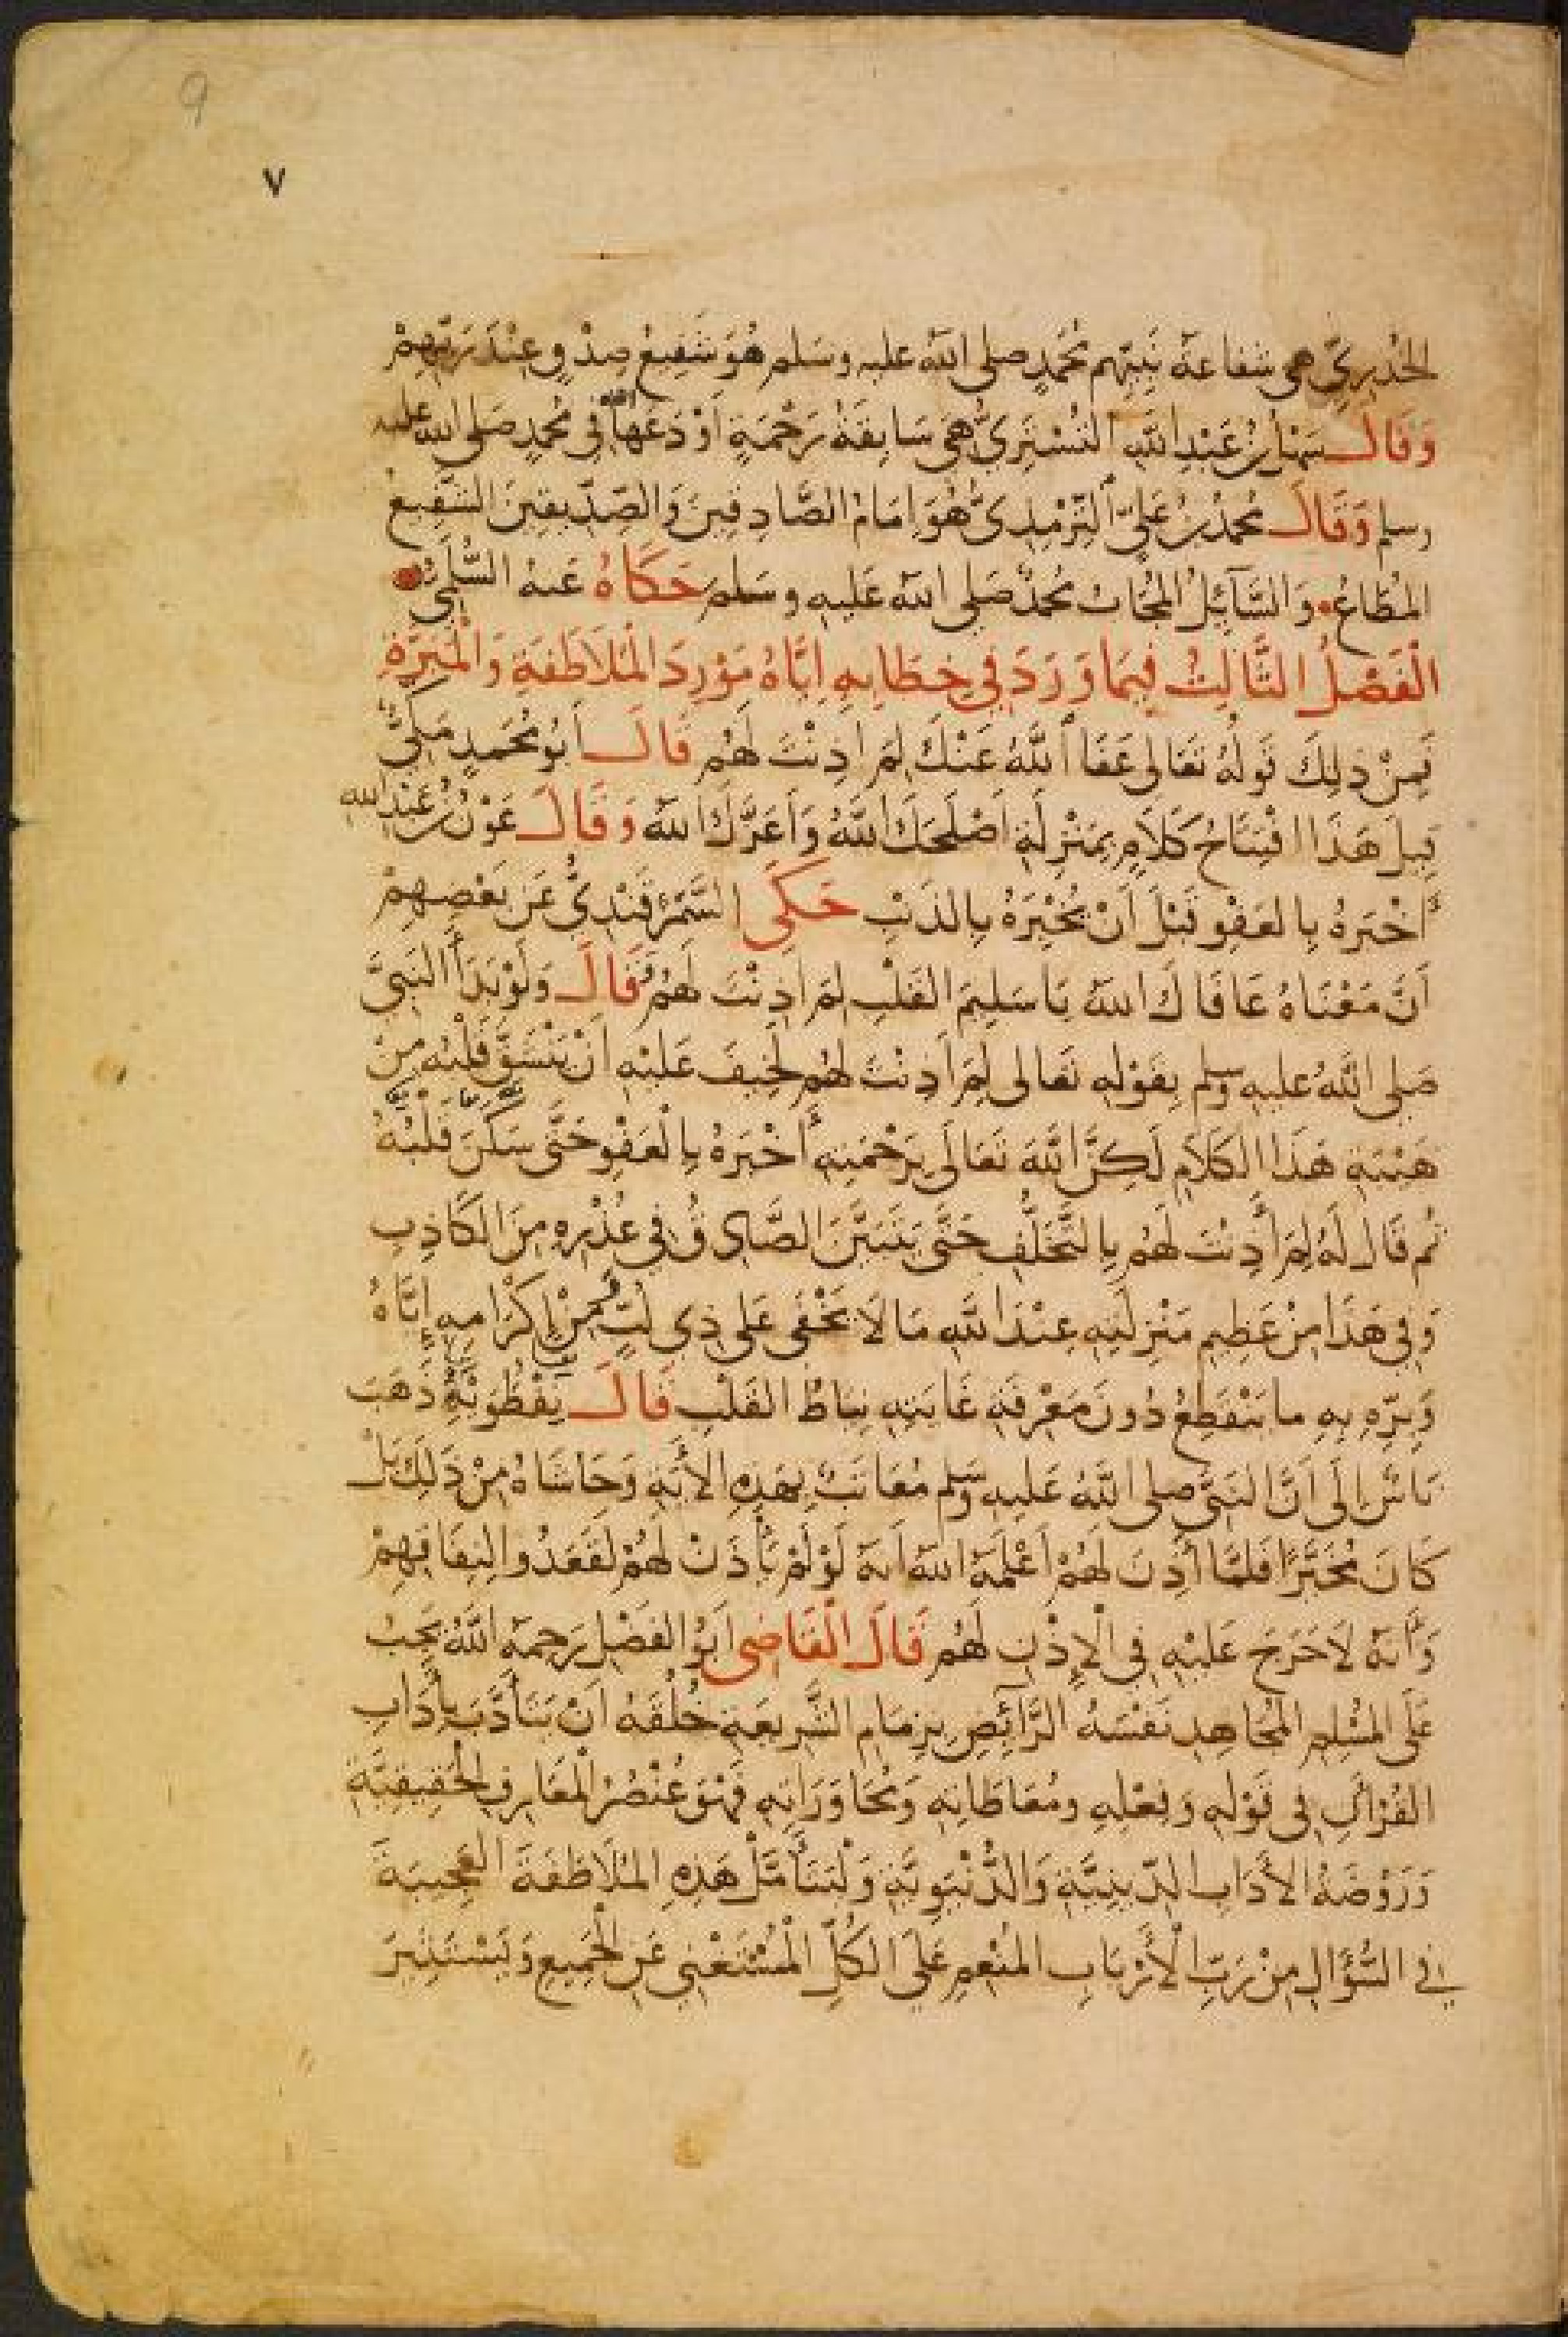 9
٧
الخُدْرِيِّ هي شفاعة نَبِيِّهِم مُحَمَّدٍ صلى الله عليه وسَلم هُوَ شَفِيعُ صِدْقٍ عِنْدَ رَبِّهِمْ
وَقَالَ سَهْلُ بْنُ عَبْدِ اللهِ التُسْتَرِيُّ هِيَ سَابِقَةُ رَحْمَةٍ أَوْدَعَهَا اللهُ فِي مُحَمَّدٍ صَلى الله عليه
وسلم وَقَالَ مُحَمَّدُ بْنُ عَلِيٍّ التِّرْمِذِيُّ هُوَ إِمَامُ الصَّادِقِينَ وَالصِّدِّيقِينَ الشَّفِيعُ
المُطَاعُ وَالسَّائِلُ المُجَابُ مُحَمَّدٌ صَلى الله عَليه وسَلم حَكَاهُ عَنهُ السُّلَمِيُّ
الْفَصْلُ الثَّالِثُ فِيمَا وَرَدَ فِي خِطَابِهِ إِيَّاهُ مَوْرِدَ الْمُلَاطَفَةِ وَالْمَبَرَّةِ
فَمِنْ ذلِكَ قَولُهُ تَعَالى عَفَا اللَّهُ عَنْكَ لِمَ أَذِنْتَ لَهُمْ قَالَ أَبُو مُحَمَّدٍ مَكِّيٌّ
قِيلَ هَذَا افْتِتَاحُ كَلَامٍ بِمَنْزِلَةِ أَصْلَحَكَ اللَّهُ وَأَعَزَّكَ اللهُ وَقَالَ عَوْنُ بْنُ عَبْدِ اللهِ
أَخْبَرَهُ بِالعَفْوِ قَبْلَ أَنْ يُخْبِرَهُ بِالذَنْبِ حَكَى السَّمَرْقَنْدِيُّ عَنْ بَعْضِهِمْ
أَنَّ مَعْنَاهُ عَافَاكَ اللهُ يَا سَلِيمَ القَلْبِ لِمَ أَذِنْتَ لَهُمْ قَالَ وَلَوْ بَدَأَ النَبِيَّ
صَلى اللَّهُ عليه وسلم بِقَوْلِهِ تَعَالى لِمَ أَذِنْتَ لَهُمْ لَخِيفَ عَلَيْهِ أَنْ يَنْشَقَّ قَلْبُه مِنْ
هَيْبَةِ هَذَا الكَلَامِ لَكِنَّ اللَّهَ تَعَالَى بِرَحْمَتِهِ أَخْبَرَهُ بِالْعَفْوِ حَتَّى سَكَنَ قَلْبُهُ
ثُم قَالَ لَهُ لِمَ أَذِنْتَ لَهُمْ بِالتَّخَلُّفِ حَتَّى يَتَبَيَّنَ الصَّادِقُ فِي عُذْرِهِ مِنَ الكَاذِبِ
وَفِي هَذَا مِنْ عَظِيمِ مَنْزِلَتِهِ عِنْدَ اللَّهِ مَا لَا يَخْفَى عَلَى ذِي لُبٍّ وَمِنْ إِكْرَامِهِ إِيَّاهُ
وَبِرِّهِ بِهِ ما يَنْقَطِعُ دُونَ مَعْرِفَةِ غَايَتِهِ نِيَاطُ القَلْبِ قَالَ نِفْطَوَيْهِ ذَهَبَ
نَاسٌ إِلَى أَنَّ النَبِيَّ صلى اللَّهُ عَليهِ وسَلم مُعَاتَبٌ بِهَذِهِ الآيَةِ وَحَاشَاهُ مِنْ ذَلِكَ بَلْ
كَانَ مُخَيَّرًا فَلَمَّا أَذِنَ لَهُمْ أَعْلَمَهُ اللهُ أنهُ لَوْ لَمْ يَأْذَنْ لَهُمْ لَقَعَدُوا لِنِفَاقِهِمْ
وَأَنهُ لَا حَرَجَ عَلَيْهِ فِي الْإِذْنِ لَهُمْ قَالَ الْقَاضِى أَبُو الفَضْلِ رَحِمَهُ اللَّهُ يَجِبُ
عَلَى المُسْلِمِ المُجَاهِدِ نَفْسَهُ الرَّائِضِ بِزِمَامِ الشَّرِيعَةِ خُلُقَهُ أَنْ يَتَأَدَّبَ بِآدَابِ
القُرْآنِ فِي قَوْلِهِ وَفِعْلِهِ ومُعَاطَاتِهِ وَمُحَاوَرَاتِهِ فَهْوَ عُنْصُرُ الْمَعَارِفِ الْحَقِيقِيَّةِ
وَرَوْضَةُ الآدَابِ الدِّينِيَّةِ وَالدُّنْيَوِيَّةِ وَلْيَتَأَمَّلْ هَذِهِ المُلَاطَفَةَ العَجِيبَةَ
فِي السُّؤَالِ مِنْ رَبِّ الْأَرْبَابِ المُنْعِمِ عَلَى الكُلِّ الْمُسْتَغْنِي عَنِ الْجَمِيعِ وَيَسْتَثِيرَ